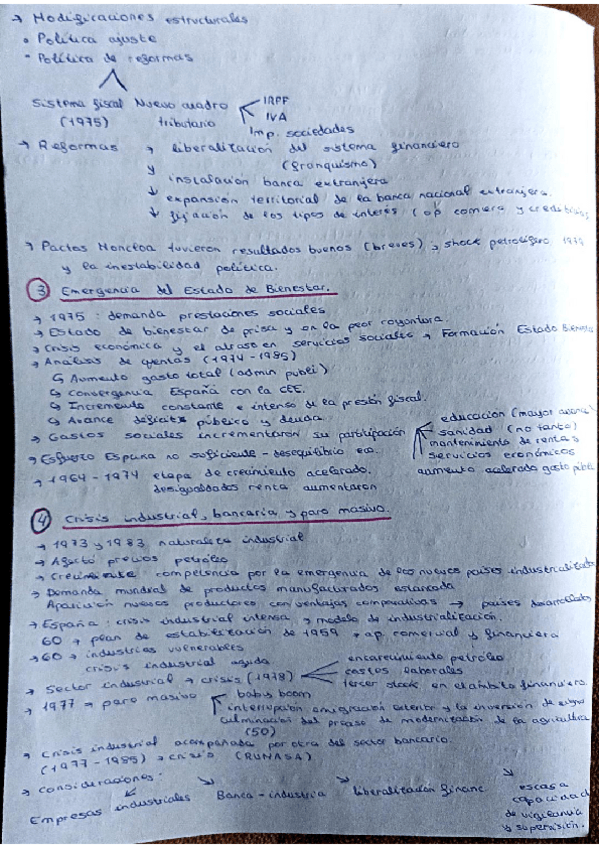 → Modificaciones estructurales
• Política ajuste
• Política de reformas
Sistema fiscal Nuevo cuadro IRPF
(1975) tributario IVA
Imp. sociedades
→ Reformas → liberalización del sistema financiero
y (franquismo)
↓ instalación banca extranjera
↓ expansión territorial de la banca nacional extranjera.
↓ fijación de los tipos de interés (op comiera y crediticias
→ Pactos Moncloa tuvieron resultados buenos (breves) → shock petrolífero 1979
y la inestabilidad política.
③ Emergencia del Estado de Bienestar.
→ 1975: demanda prestaciones sociales
→ Estado de bienestar de prisa y en la peor coyontura.
→ Crisis económica y el atraso en servicios sociales → Formación Estado Bienestar
→ Análisis de cuentas (1974-1985)
↳ Aumento gasto total (admin publi)
↳ Convergencia España con la CEE.
↳ Incremento constante e intenso de la presión fiscal.
↳ Avance déficits público y deuda. educación (mayor avance)
→ Gastos sociales incrementaron su participación sanidad (no tanto)
mantenimiento de rentas
→ Esfuerzo España no suficiente - desequilibrio eco. servicios económicos
→ 1964-1974 etapa de crecimiento acelerado. aumento acelerado gasto públ
desigualdades renta aumentaron
④ Crisis industrial, bancaria y paro masivo.
→ 1973 y 1983 naturaleza industrial
→ Afectó precios petróleo
→ Creciente competencia por la emergencia de los nuevos países industrializado
→ Demanda mundial de productos manufacturados estancada
Aparición nuevos productores con ventajas comparativas → países desarrollados
→ España: crisis industrial intensa → modelo de industrialización.
60 → plan de estabilización de 1959 → ap. comercial y financiera
→ 60 → industrias vulnerables
crisis industrial aguda encarecimiento petróleo
→ Sector industrial → crisis (1978) costes laborales
tercer shock en el ámbito financiero.
→ 1977 → paro masivo baby boom
interrupción emigración exterior y la inversión de
culminación del proceso de modernización de la agricultura
(50)
→ Crisis industrial acompañada por otra del sector bancario.
(1977-1985) → crisis (RUMASA)
→ Consideraciones:
Empresas industriales Banca-industria liberalización financ escasa
capacidad
de vigilancia
y supervisión.